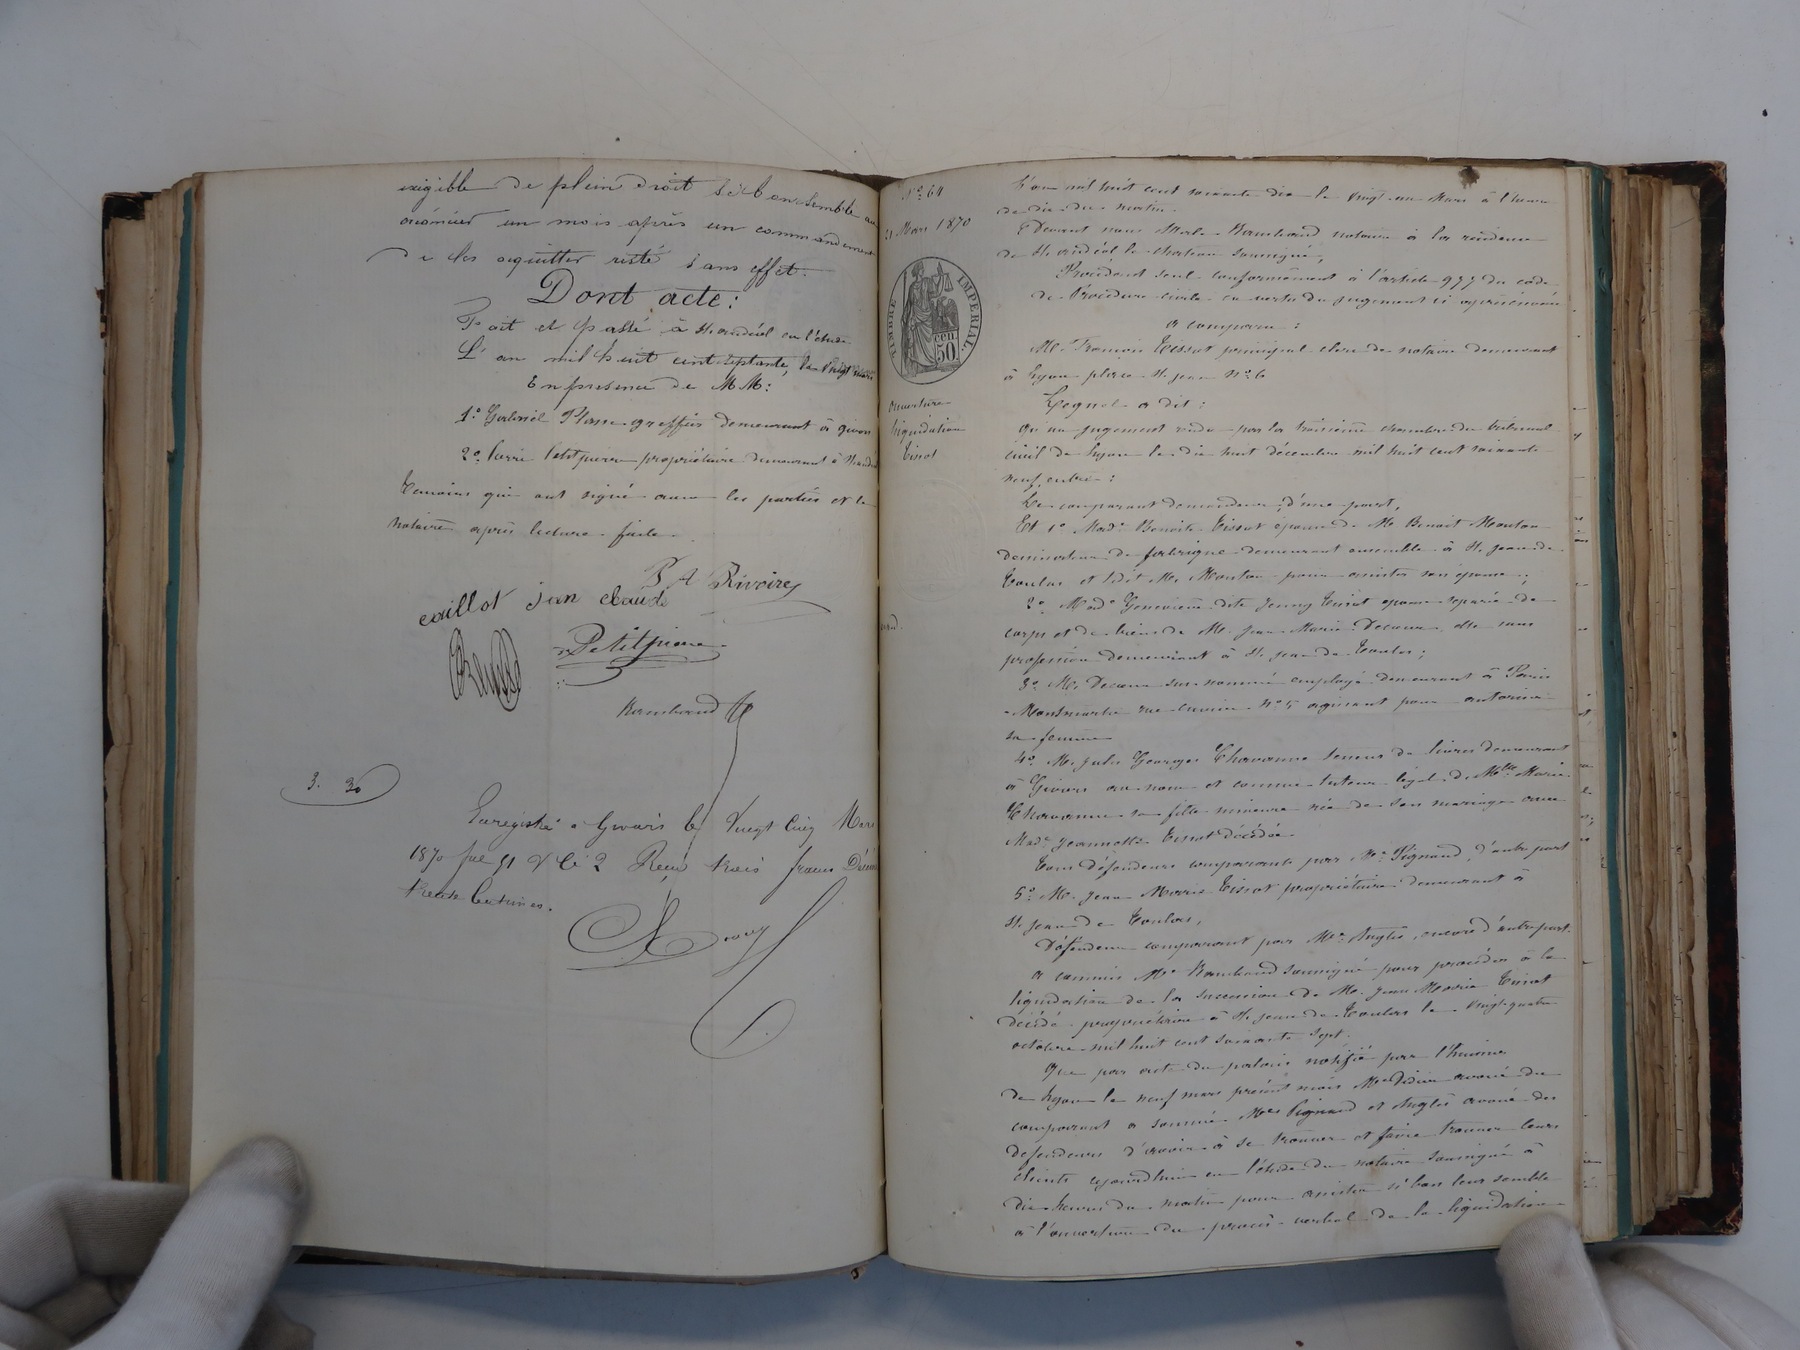 exigible de plein droit si bon semble au
créancier un mois après un commandement
de les aquitter resté sans effet.
Dont acte:
Fait et passé à St andéol en l'étude
L'an mil huit cent septante, le vingt mars
En présence de MM:
1º Gabriel Plasse greffier demeurant à givors
2º Pierre Petitpierre propriétaire demeurant à St andéol
Témoins qui ont signé avec les parties et le
notaire après lecture faite.
P A Rivoire
caillot jean claude
Petitpierre
Rambaud
3. 30
Enregistré à Givors le Vingt Cinq Mars
1870 fol 51 Vº Cº 2 Reçu trois francs Décime
trente Centimes.
Nº 64
21 Mars 1870
TIMBRE IMPERIAL.
50 cen
Ouverture
liquidation
Tissot
L'an mil huit cent soixante dix le vingt un Mars à l'heure
de dix du matin
Devant nous Rambaud notaire à la résidence
de St andéol le chateau soussigné,
Procédant seul conformément à l'article 977 du code
de Procédure civile en vertu du jugement ci après énoncé
a comparu :
M. François Tissot principal clerc de notaire demeurant
à Lyon place St jean Nº 6
Lequel a dit :
qu'un jugement rendu par la troisième chambre du tribunal
civil de Lyon le dix huit décembre mil huit cent soixante
neuf, entre :
Le comparant demandeur, d'une part,
Et 1º Made Benoite Tissot épouse de M. Benoit Mouton
dessinateur de fabrique demeurant ensemble à St jean de
Toulas et ledit M. Mouton pour assister son épouse ;
2º Made Geneviève dite Jenny Tissot épouse séparée de
corps et de biens de M. Jean Marie Decoeur, elle sans
profession demeurant à St jean de Toulas ;
3º M. Decoeur sus nommé employé demeurant à Paris
Montmartre rue Nº 5 agissant pour autoriser
sa femme
4º M. Jules Georges Chavanne teneur de livres demeurant
à Givors au nom et comme tuteur légal de Mlle Marie
Chavanne sa fille mineure née de son mariage avec
Made Jeannette Tissot décédée
Tous défendeurs comparants par Me Pignaud, d'autre part
5º M. Jean Marie Tissot propriétaire demeurant à
St Jean de Toulas,
Défendeur comparant par Me Anglès, encore d'autre part.
a commis Me Rambaud soussigné pour procéder à la
liquidation de la succession de M. Jean Marie Tissot
décédé propriétaire à St jean de Toulas le vingt quatre
octobre mil huit cent soixante sept.
Que par acte du palais notifié par l'huissier
de Lyon le neuf mars présent mois Me Didier avoué du
comparant a sommé Mes Pignaud et Anglès avoués des
défendeurs d'avoir à se trouver et faire trouver leurs
clients aujourd'hui en l'étude du notaire soussigné à
dix heures du matin pour assister si bon leur semble
à l'ouverture du procès-verbal de la liquidation